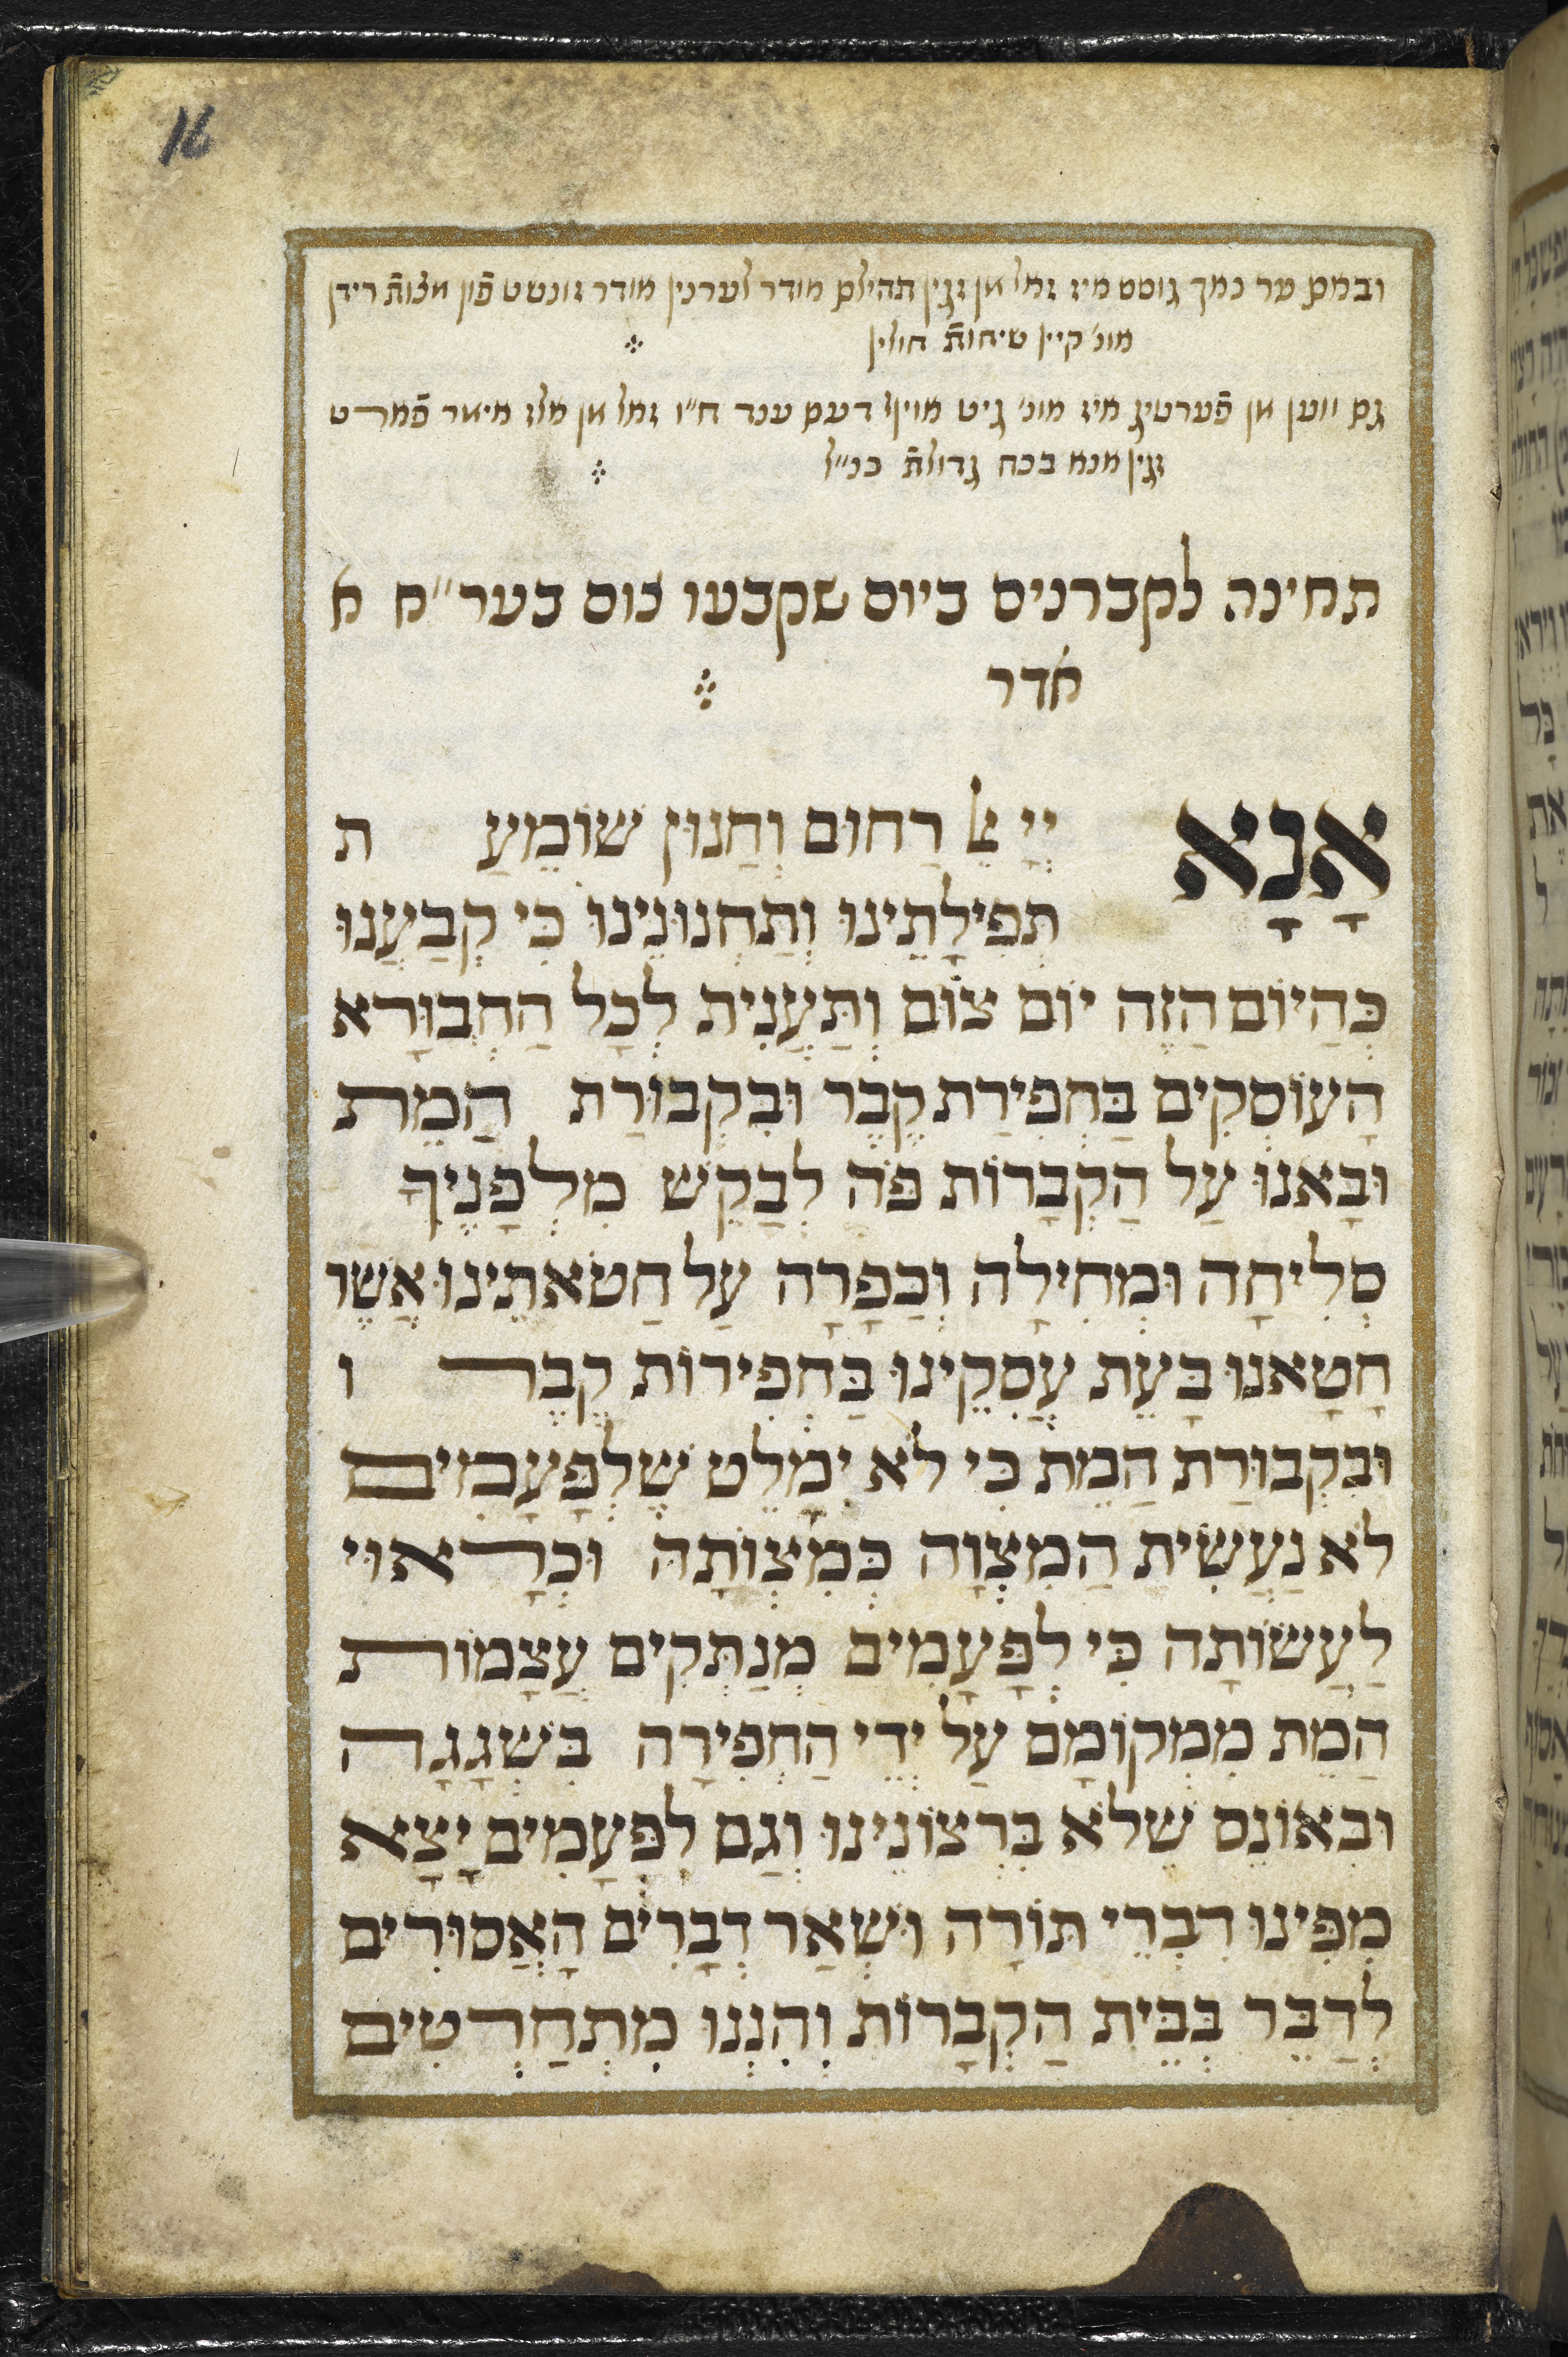 16
ובמם ער נמך גוסט מיז זמל מן זגין תהילם מודר לערנין מודר זונשט פֿון מצות רידן
מונ׳ קיין שיחות חולין
גם ווען מן פֿערטיג מיז מונ׳ גיט מוועק דעם ענד ח״ו זמל מן מלז מיאר פֿמרט
זגין מנמ בכח גדולת כנ״ל
תחינה לקברנים ביום שקבעו צום בער״ח א
אדר
אָנָא
יְיָ אֵל רַחוּם וְחַנוּן שׁוֹמֵעַ ת
תְפִילָתֵינוּ וְתַחְנוּנֵינוּ כִּי קְבַעֲנוּ
כְּהַיוֹם הַזֶה יוֹם צוֹם וְתַּעֲנִית לְכָל הַחְבוּרָא
הָעוֹסְקִים בַּחְפִירַת קֶבֶר וּבִּקְבוּרַת הַמֵת
וּבָאנוּ עַל הַקְבָרוֹת פֹּה לְבַקֵשׁ מִלְפָנֶיךָ
סְלִיחָה וּמְחִילָה וְכַפָּרָה עַל חַטֹאתֵינוּ אֲשֶׁר
חָטָאנוּ בָּעֵת עֲסְקֵינוּ בַּחְפִירוֹת קֶבֶר ו
וּבִּקְבוּרַת הַמֵת כִּי לֹא יִמָלֵט שֶׁלְפְּעָמִים
לֹא נַעֲשִׂית הַמִצְוָה כְּמִצְוֹתָהּ וּכְרָאוּי
לַעֲשׂוֹתָה כִּי לְפְּעָמִים מְנַתְּקִים עֲצָמוֹת
הַמֵת מִמְקוֹמָם עַל יְדֵי הַחְפִירָה בִּשְׁגָגָה
וּבְאוֹנֶס שֶׁלֹא בִּרְצוֹנֵינוּ וְגַם לִפְּעָמִים יָצָא
מִפִּינוּ דִבְרֵי תוֹרָה וּשְׁאַר דְבָרִים הָאֲסוּרִים
לְדַבֵּר בְּבֵּית הַקְבָרוֹת וְהִנְנוּ מִתְחַרְטִים